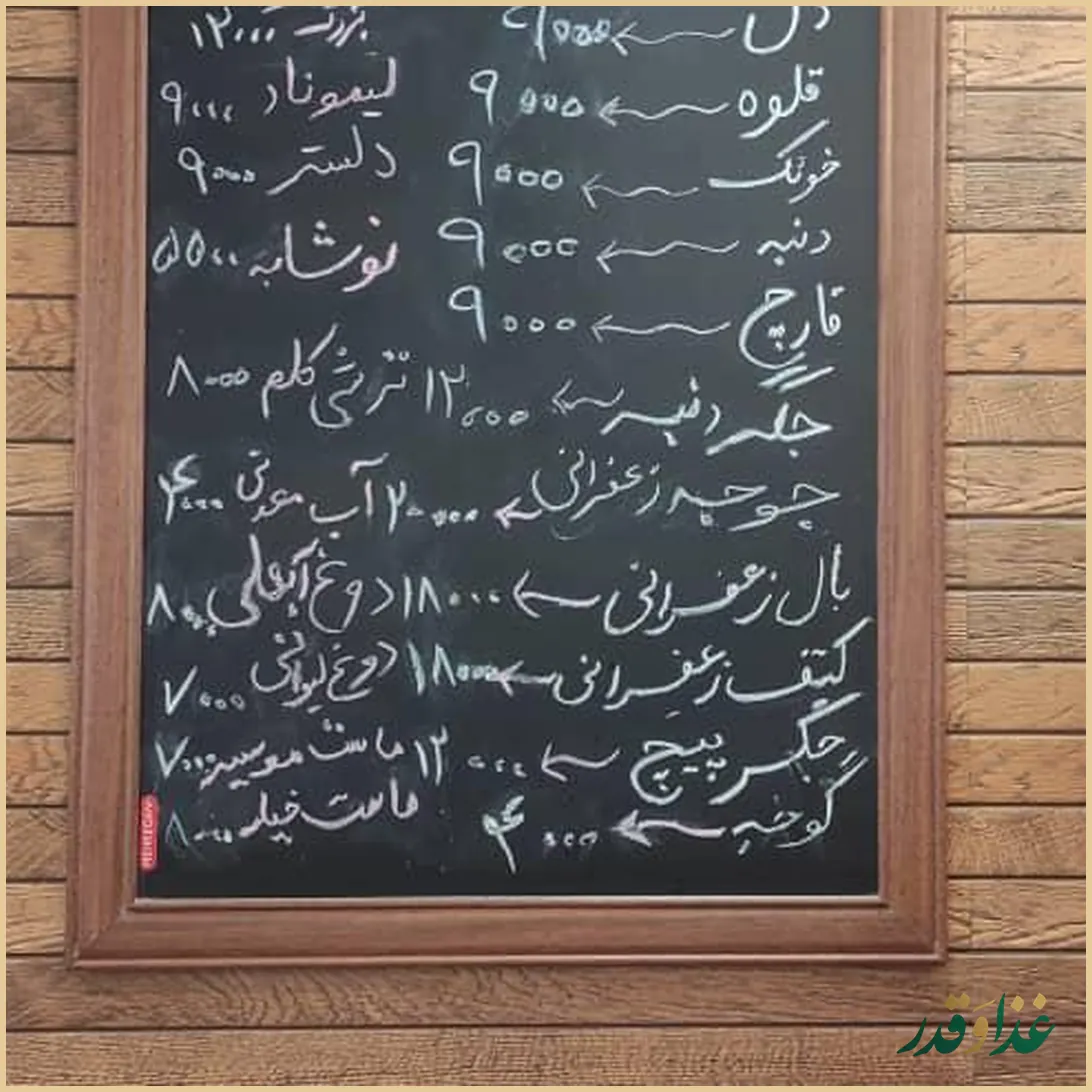 دل ۹۰۰۰
قلوه ۹۰۰۰
خونک ۹۰۰۰
دنبه ۹۰۰۰
قارچ ۹۰۰۰
جگر دنبه ۱۲۰۰۰
جوجه زعفرانی ۲۰۰۰۰
بال زعفرانی ۱۸۰۰۰
کتف زعفرانی ۱۸۰۰۰
جگر پیچ ۱۲۰۰۰
گوجه ۴۰۰۰
بزرگ ۱۲۰۰۰
لیموناد ۹۰۰۰
دلستر ۹۰۰۰
نوشابه ۵۵۰۰
ترشی کلم ۸۰۰۰
آب معدنی ۴۰۰۰
دوغ آبعلی ۸۰۰۰
دوغ لیوانی ۷۰۰۰
ماست موسیر ۷۰۰۰
ماست خیار ۸۰۰۰
غذا و قدر